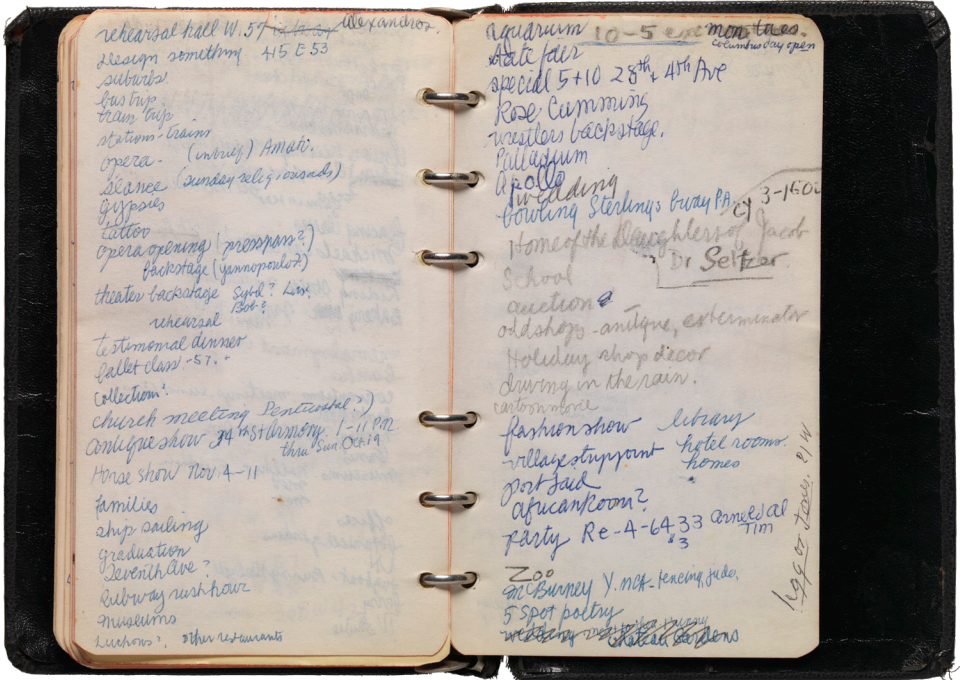 rehearsal hall W. 57 Alexandros.
design something 415 E 53
suburbs
bus trip.
train trip
stations-trains
opera - (inbrief) Amato.
séance (sunday religious ads)
gypsies
tattoo
opera opening (press pass?)
backstage (yannopouloz)
theater backstage Sybil?
Bob?
rehearsal
testimonial dinner
ballet class -57.
Collections?
church meeting Pentecostal?)
antique show 34th St Armory. 1-11 P.M.
thru Sun Oct 19
Horse show Nov. 4-11
families
ship sailing
graduation
Seventh Ave?
Subway rush hour
museums
Luchons? other restaurants
aquarium 10-5 mon tues.
columbus day open
state fair
special 5+10 28th + 4th Ave
Rose Cumming
wrestlers backstage.
Palladium
Apollo
wedding
bowling Sterlings bway P.A.
Cy 3-1600
Home of the Daughters of Jacob
Dr Seltzer
School
auction
odd shops - antique, exterminator
Holiday shop decor
driving in the rain.
cartoon movie
fashion show library
village stuppoint hotel rooms.
homes
port said
african Room?
party Re-4-6433
3
Tim
Zoo
McBurney Y mca - fencing, judo,
5 Spot poetry
chateau Gardens